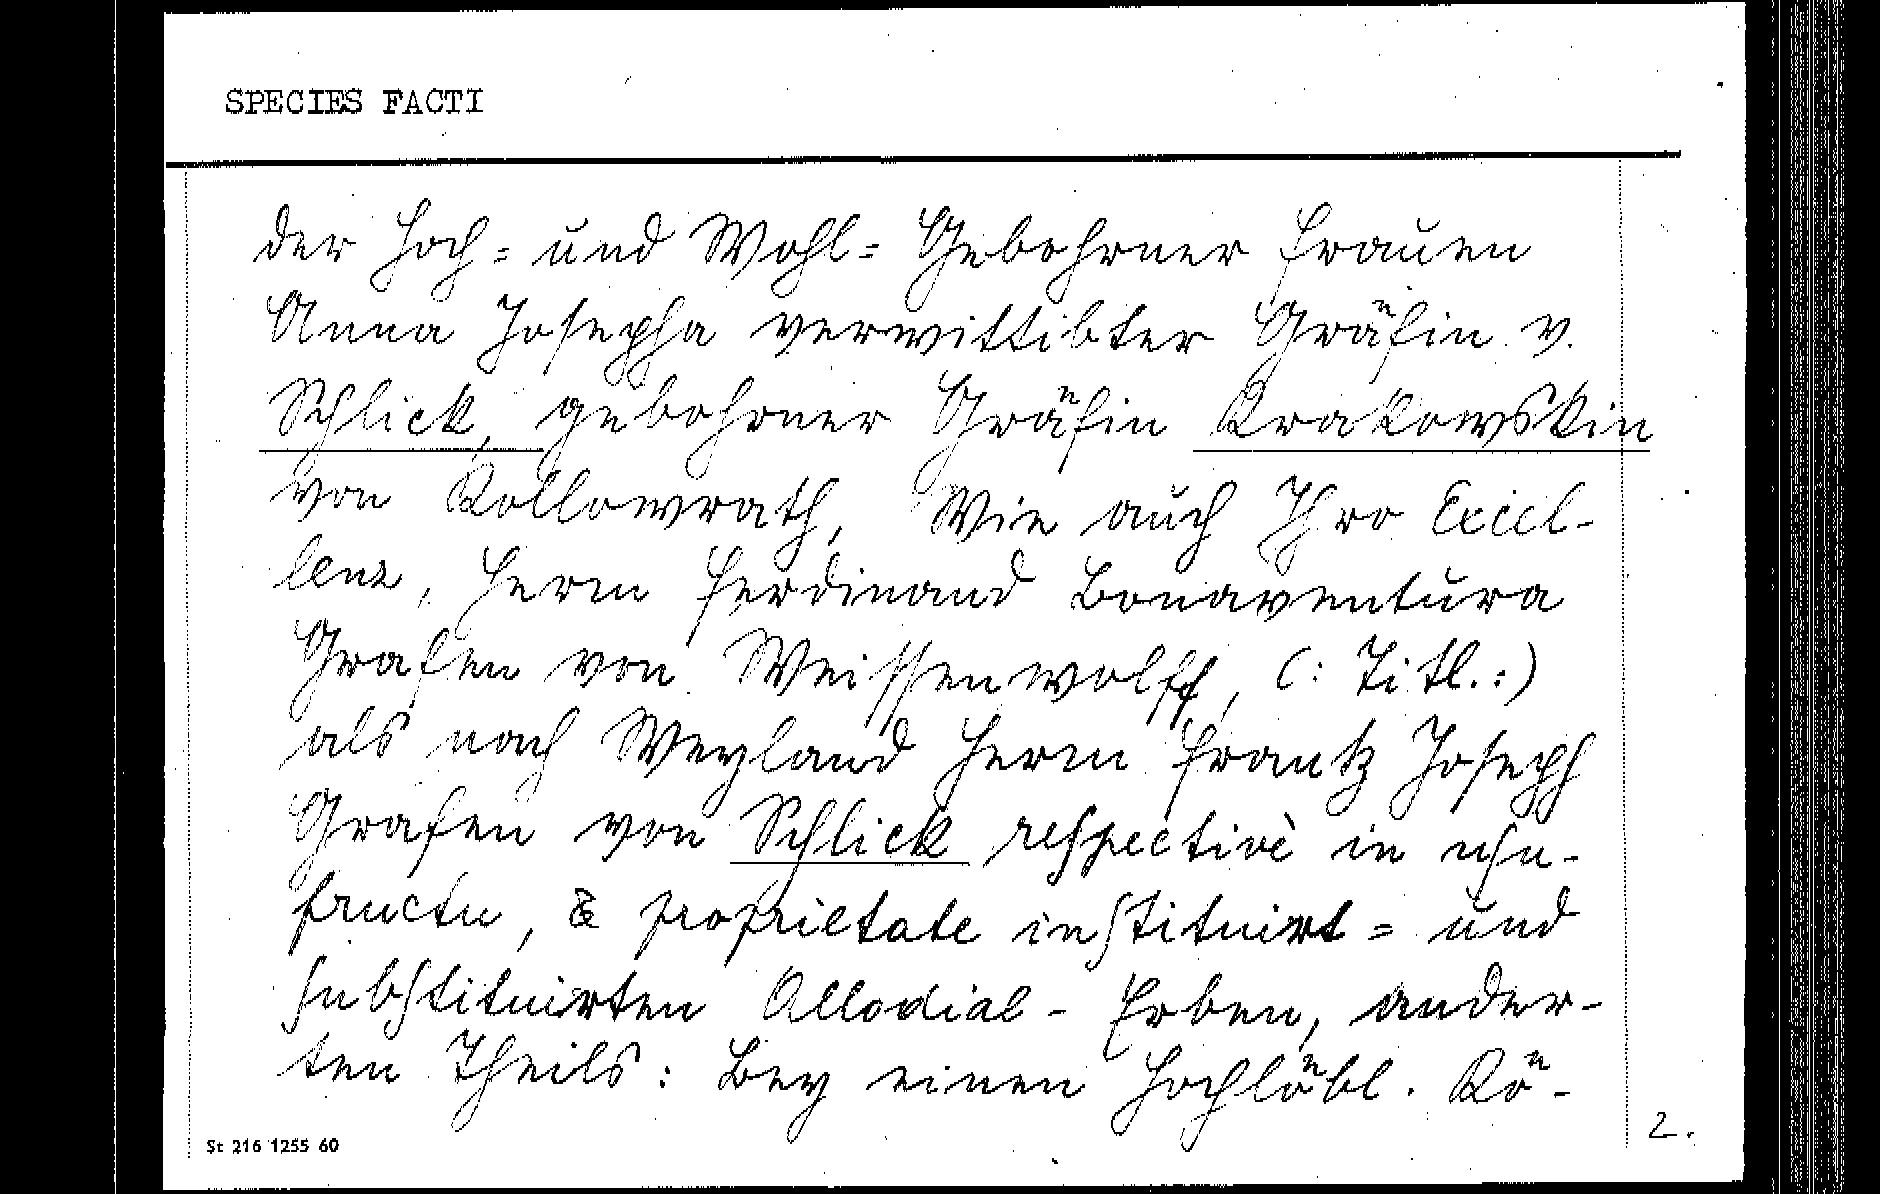 SPECIES FACTI
der Hoch= und Wohl= Gebohrner Frauen
Anna Josepha verwittibter Gräfin v.
Schlick, gebohrner Gräfin Krakowskin
von Kollowrath, Wie auch Ihro Excel-
lenz, Herrn Ferdinand Bonaventura
Grafen von Weissenwolff, (: Titl.:)
als nach Weyland Herrn Frantz Joseph
Grafen von Schlick respectivè in usu-
fructu, & proprietate instituirt= und
substituirten Allodial- Erben, ander-
ten Theils: Bey einen Hochlöbl. Kö-
2.
St 216 1255 60